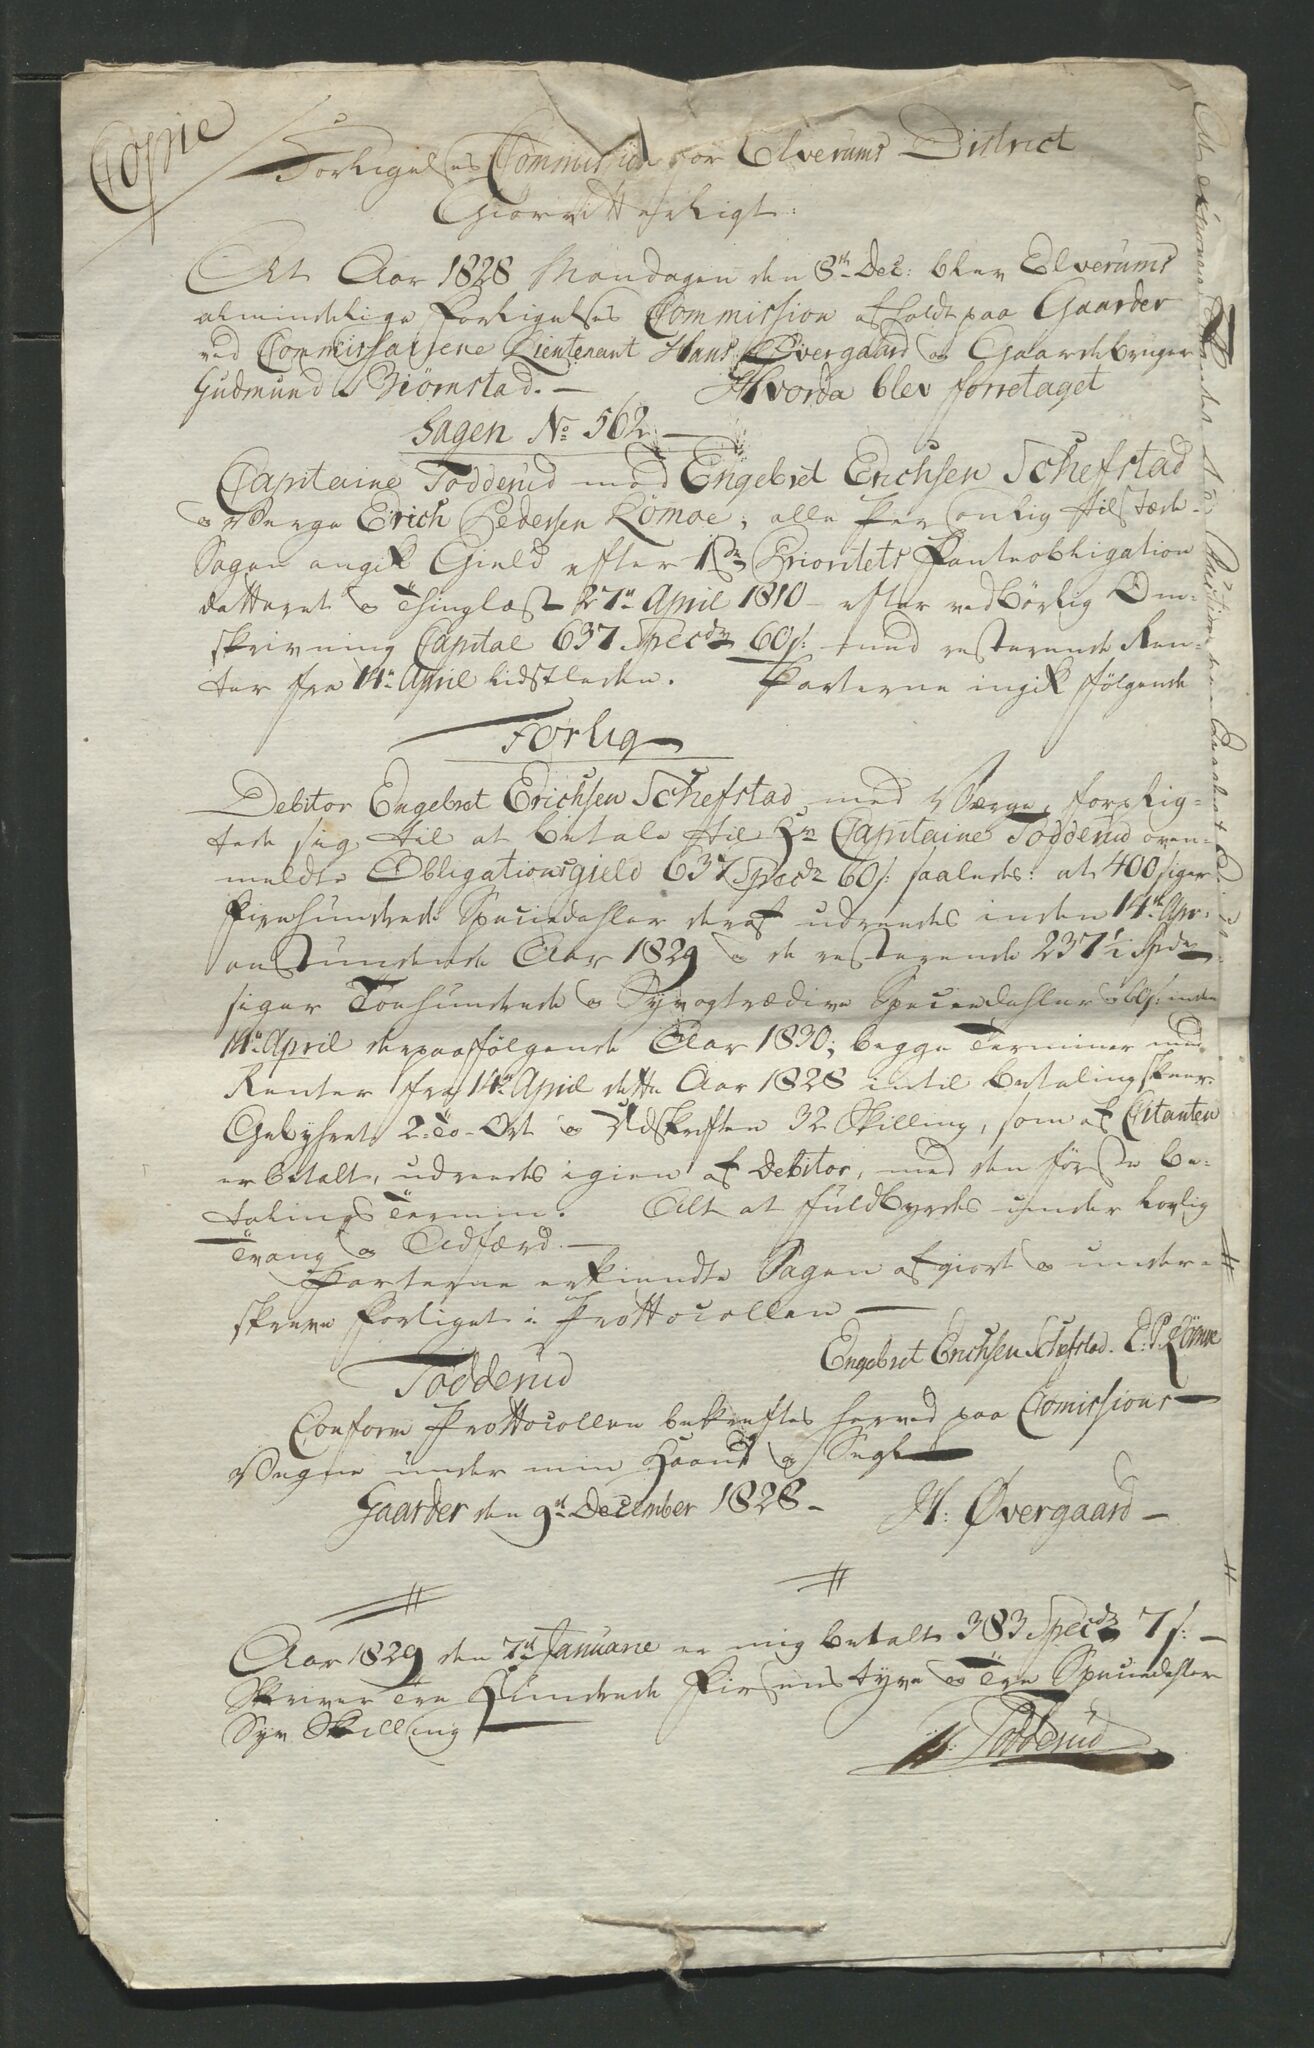 Copie
Forligelses Commission for Elverums District
Giør vitterligt:
At Aar 1828 Mandagen den 8de Dec: blev Elverums
almindelige Forligelses Commission afholdt paa Gaarder
ved Commissairene Lieutenant Hans Øvergaard og Gaardebruger
Gudmund Biörnstad. — Hvorda blev forretaget
Sagen No 562. —
Capitaine Todderud med Engebret Erichsen Schefstad
og Værge Erich Pedersen Römoe, alle Personlig tilstæde.
Sagen angik Gield efter 1ste Prioritets Panteobligation
datteret og Thinglæst 27de April 1810 — efter vedbörlig Om-
skrivning Capital 637 Specdr 60 s: med resterende Ren-
ter fra 14de April sidstleden. Parterne ingik følgende
Forlig
Debitor Engebret Erichsen Schefstad med Værge, forplig-
tede sig til at betale til Hr Capitaine Todderud oven-
meldte Obligationsgield 637 Specdr 60 s: saaledes: at 400 siger
Firehundrede Speciedahler deraf udreedes inden 14de Apr:
anstundende Aar 1829 og de resterende 237 1/2 Spdr
siger Toehundrede og Syvogtrædive Speciedahler og 60 s: inden
14de April derpaafølgende Aar 1830; begge Terminer med
Renter fra 14de April dette Aar 1828 intil betaling skeer.
Gebyhret 2 – To – Ort og Udskriften 32 Skilling, som af Citanten
er betalt, udreedes igien af Debitor, med den første be-
talings Termin. Alt at fuldbyrdes under lovlig
Tvang og Adfærd. —
Parterne erkiendte Sagen afgiort og under-
skrev Forliget i Prottocollen —
Todderud Engebret Erichsen Schefstad. E. P. Römoe
Conform Prottocollen bekræftes herved paa Comissions
Vegne under min Haand og Segl
Gaarder den 9de December 1828 – H: Øvergaard —
Aar 1829 den 7de Januarie er mig betalt 383 Specdr 7 s: —
Skriver Tre Hundrede Firsenstyve og Tre Speciedaler
Syv Skilling
Todderud